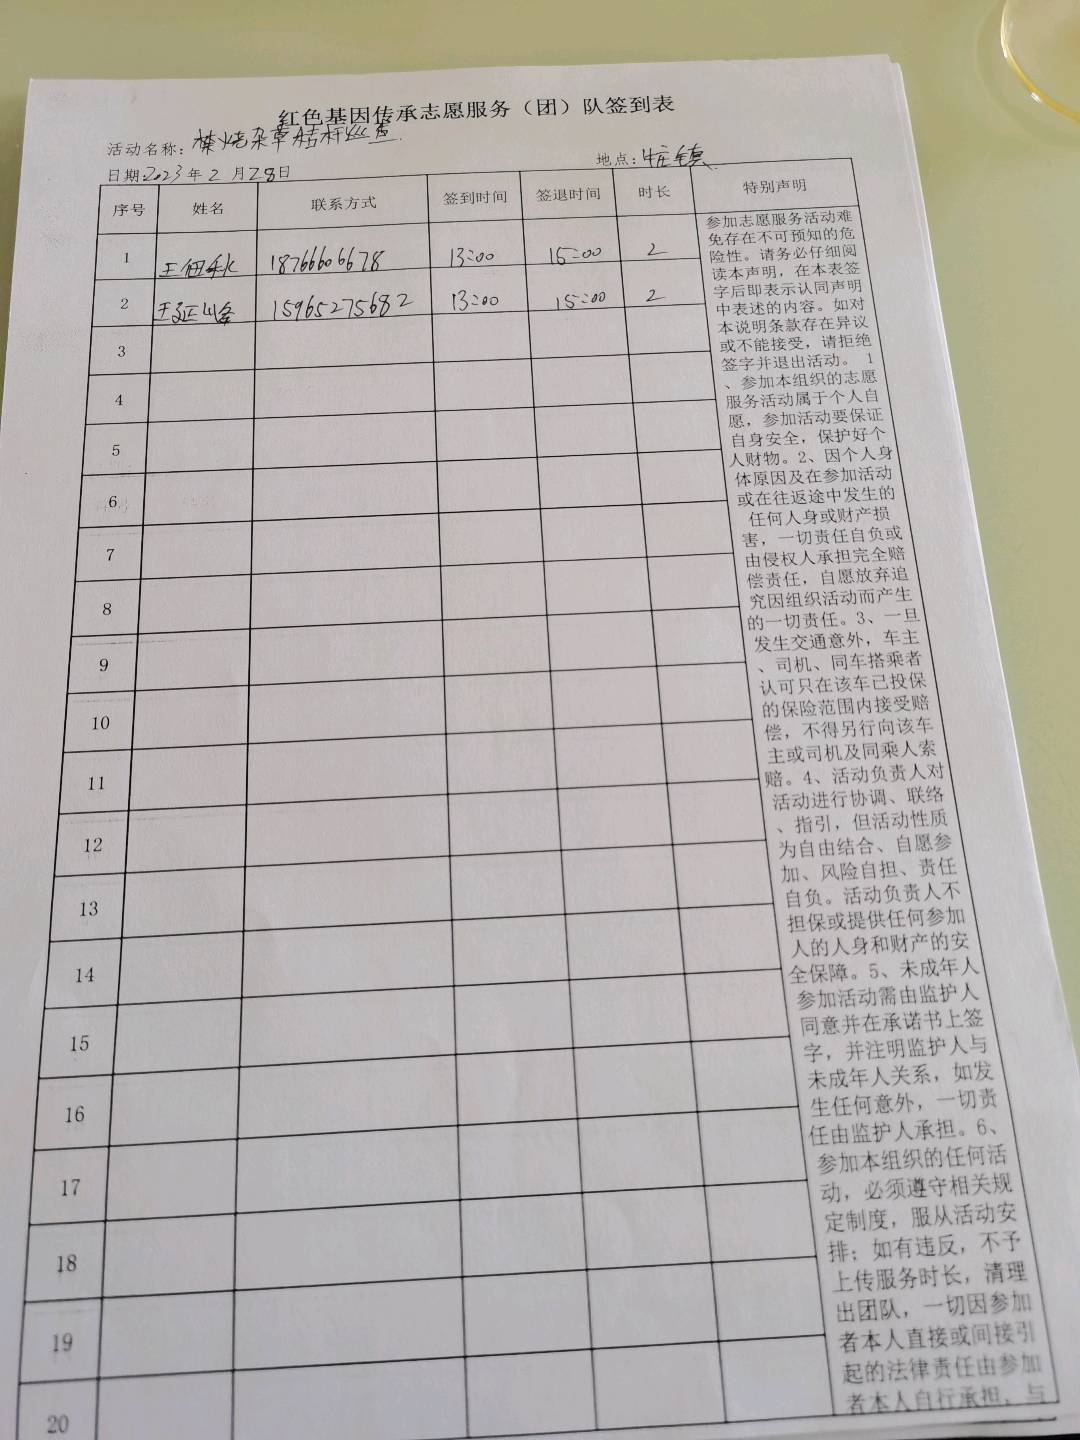 红色基因传承志愿服务（团）队签到表
活动名称：禁烧杂草秸秆巡查
日期:2023年2月28日
地点：
序号 姓名 联系方式 签到时间 签退时间 时长 特别声明
1 18766606678 13:00 15:00 2
2 15965275682 13:00 15:00 2
3
4
5
6
7
8
9
10
11
12
13
14
15
16
17
18
19
20
参加志愿服务活动难
免存在不可预知的危
险性。请务必仔细阅
读本声明，在本表签
字后即表示认同声明
中表述的内容。如对
本说明条款存在异议
或不能接受，请拒绝
签字并退出活动。 1
、参加本组织的志愿
服务活动属于个人自
愿，参加活动要保证
自身安全，保护好个
人财物。2、因个人身
体原因及在参加活动
或在往返途中发生的
任何人身或财产损
害，一切责任自负或
由侵权人承担完全赔
偿责任，自愿放弃追
究因组织活动而产生
的一切责任。3、一旦
发生交通意外，车主
、司机、同车搭乘者
认可只在该车已投保
的保险范围内接受赔
偿，不得另行向该车
主或司机及同乘人索
赔。4、活动负责人对
活动进行协调、联络
、指引，但活动性质
为自由结合、自愿参
加、风险自担、责任
自负。活动负责人不
担保或提供任何参加
人的人身和财产的安
全保障。5、未成年人
参加活动需由监护人
同意并在承诺书上签
字，并注明监护人与
未成年人关系，如发
生任何意外，一切责
任由监护人承担。6、
参加本组织的任何活
动，必须遵守相关规
定制度，服从活动安
排；如有违反，不予
上传服务时长，清理
出团队，一切因参加
者本人直接或间接引
起的法律责任由参加
者本人自行承担，与